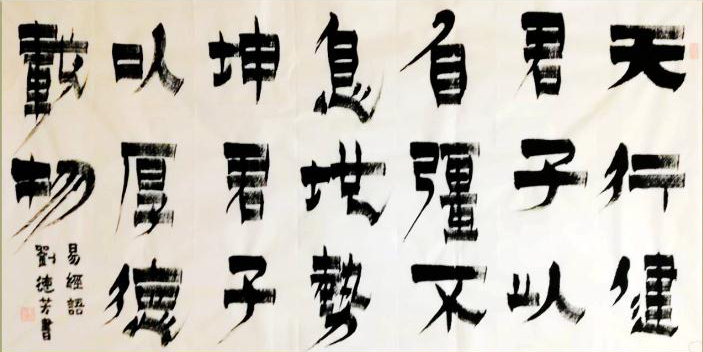 天行健
君子以
自彊不
息地勢
坤君子
以厚德
載物
易經語
劉德芳書